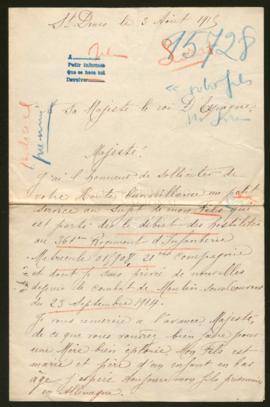 St Denis le 3 Août 1915
15728
A
Pedir informes
Que se hace así
Devolver
A Sa Majesté le roi D'Espagne
Majesté!
J'ai l'honneur de solliciter de
votre Haute Bienveillance un petit
service au sujet de mon fils qui
est parti dès le début des hostilités
au 361eme Régiment d'Infanterie
Matricule 01708 21eme compagnie
et dont je suis privée de nouvelles
depuis le combat de Moulin-sous-Touvent
du 23 Septembre 1914.
Je vous remercie à l'avance Majesté
de ce que vous voudrez bien faire pour
une Mère bien éplorée Mon fils est
marié et père d'un enfant en bas
âge J'espère toujours mon fils prisonnier
en Allemagne.